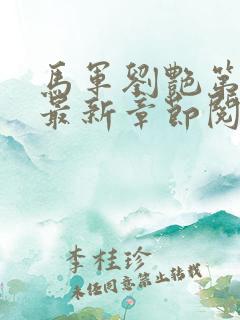 馬軍劉艷第
最新章節閱
李桂珍
未经同意禁止转载